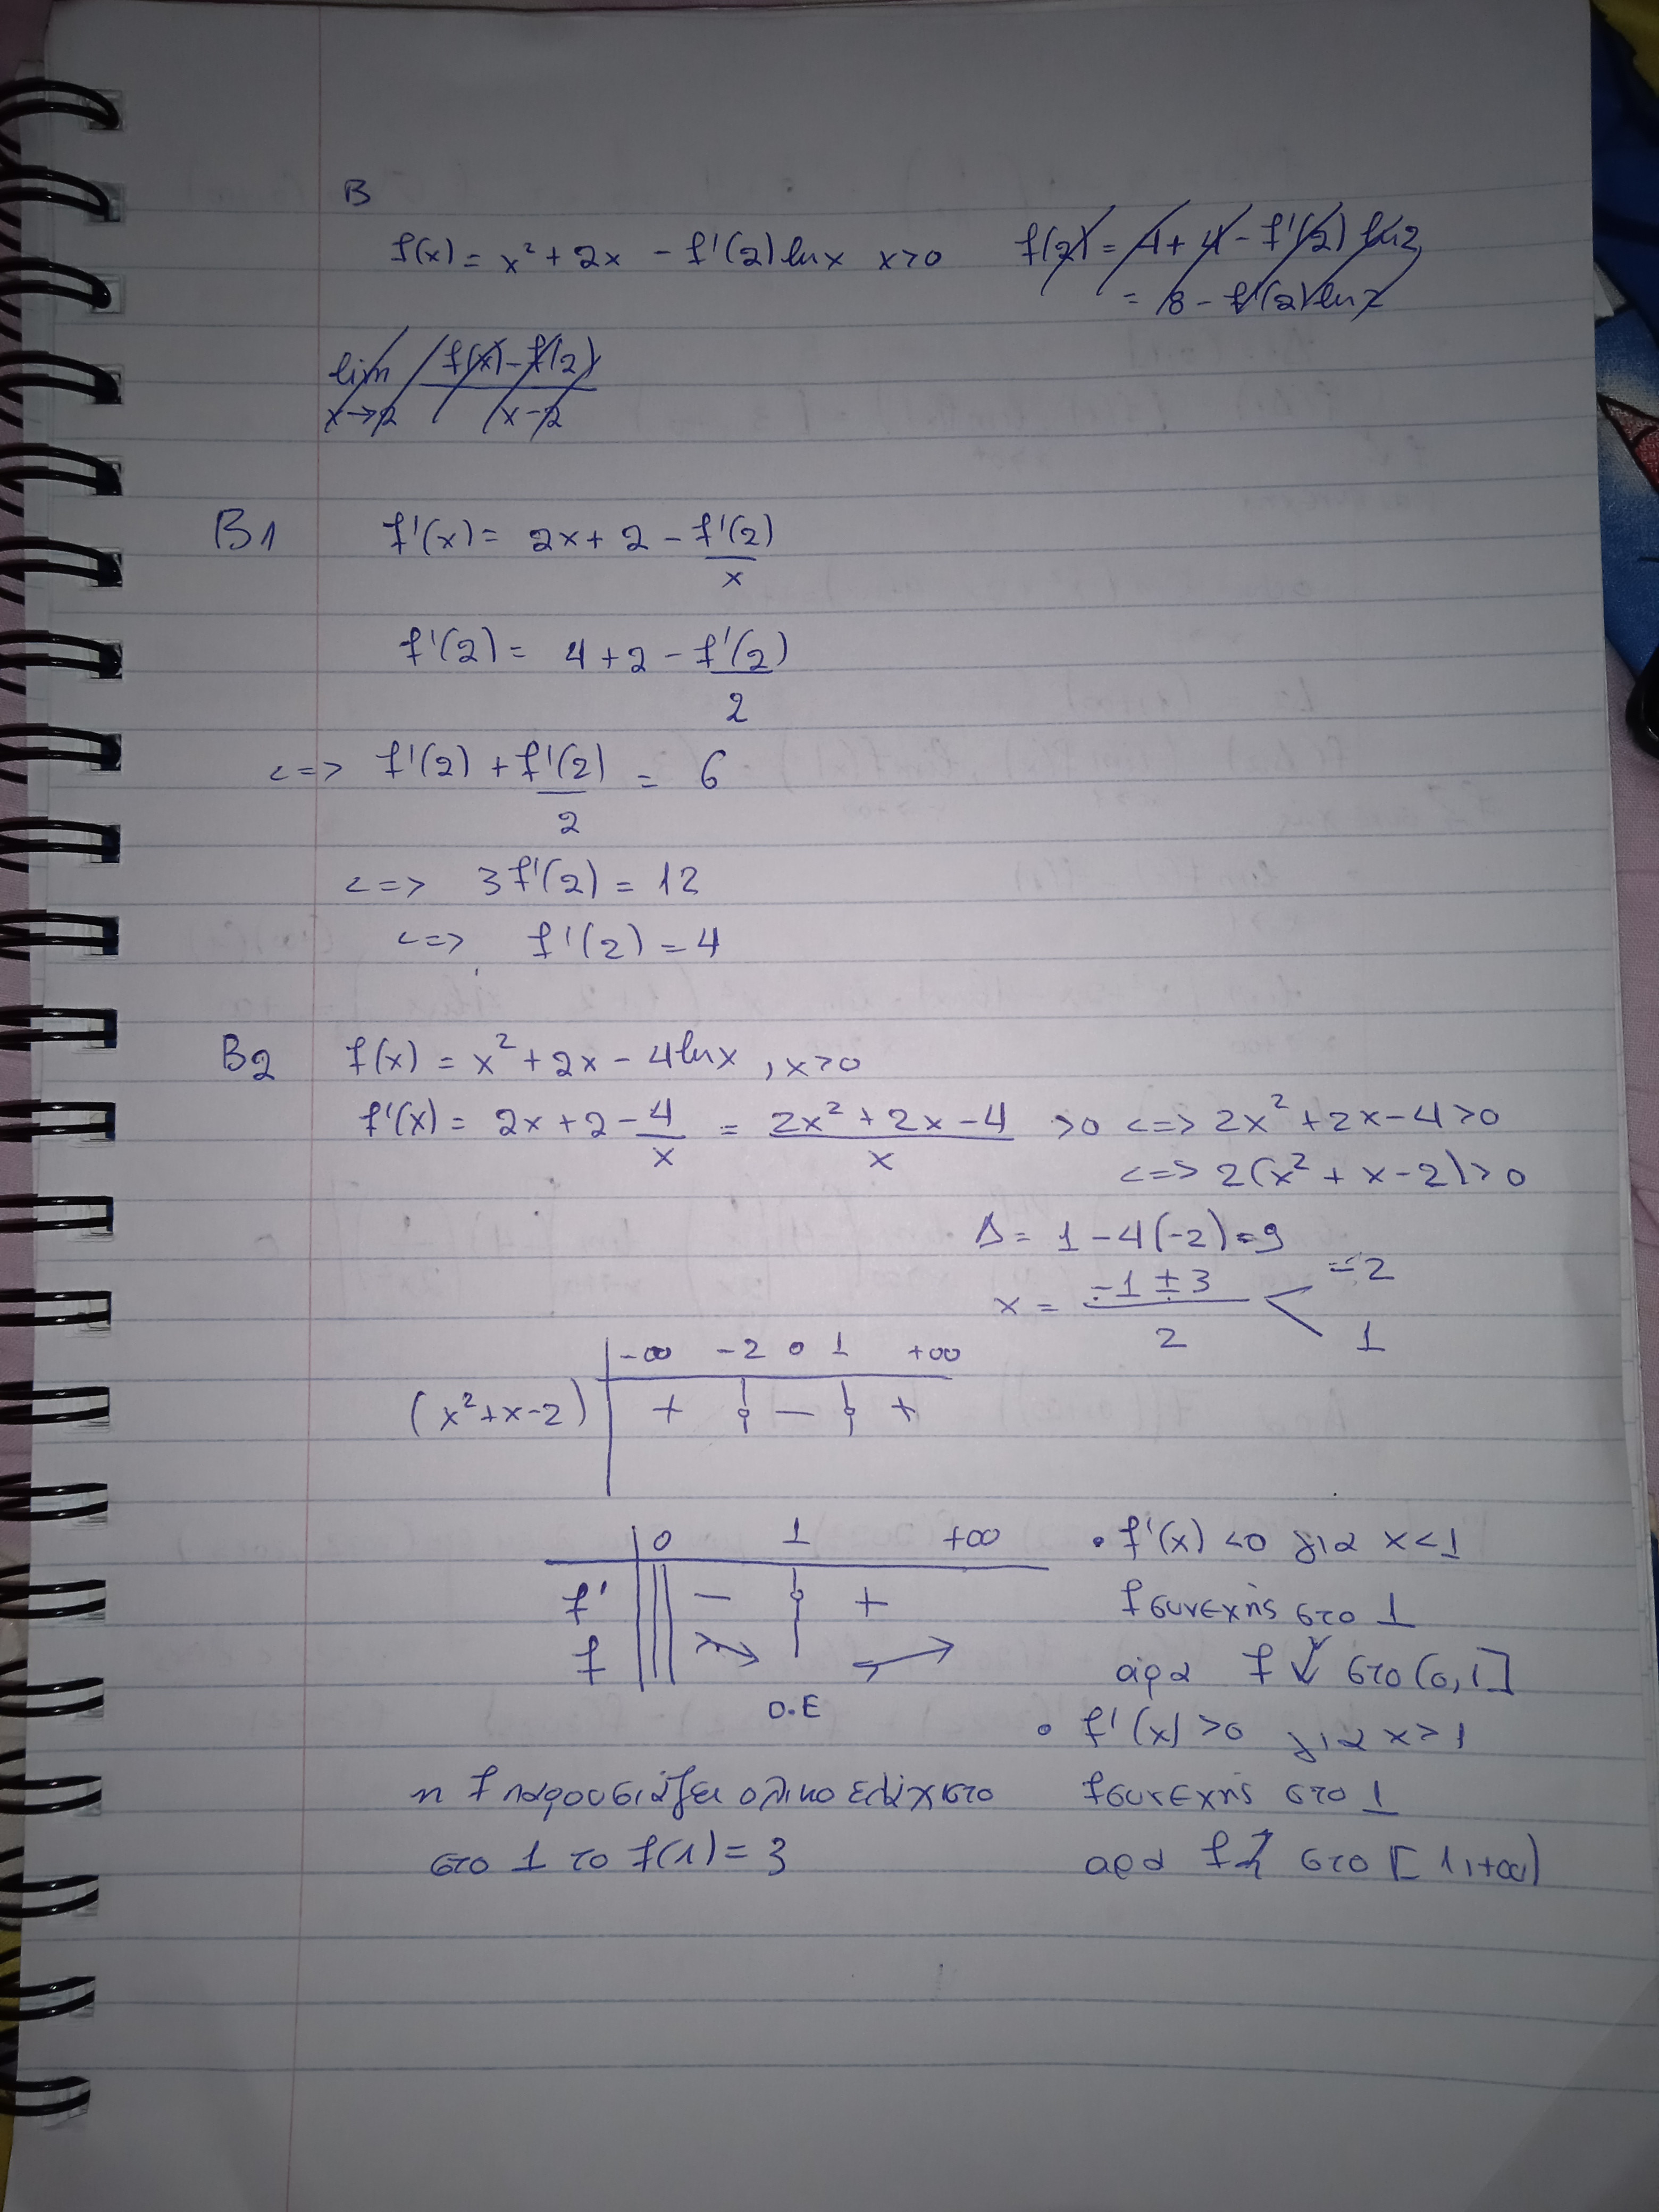 B
f(x) = x² + 2x - f'(2) lnx x>0 f(2) = 4 + 4 - f'(2) ln2
= 8 - f'(2) ln2
lim f(x) - f(2)
x→2 x-2
B1 f'(x) = 2x + 2 - f'(2)/x
f'(2) = 4 + 2 - f'(2)/2
<=> f'(2) + f'(2)/2 = 6
<=> 3f'(2) = 12
<=> f'(2) = 4
B2 f(x) = x² + 2x - 4lnx , x>0
f'(x) = 2x + 2 - 4/x = (2x² + 2x - 4)/x >0 <=> 2x² + 2x - 4 >0
<=> 2(x² + x - 2) >0
Δ = 1 - 4(-2) = 9
x = (-1 ± 3)/2 < -2
1
-∞ -2 0 1 +∞
(x² + x - 2) + - +
0 1 +∞
f' - +
f ↘ ↗
Ο.Ε
• f'(x) <0 για x<1
f συνεχής στο 1
άρα f ↓ στο (0,1]
• f'(x) >0 για x>1
f συνεχής στο 1
αρα f ↑ στο [1,+∞)
η f παρουσιάζει ολικο ελάχιστο
στο 1 το f(1) = 3